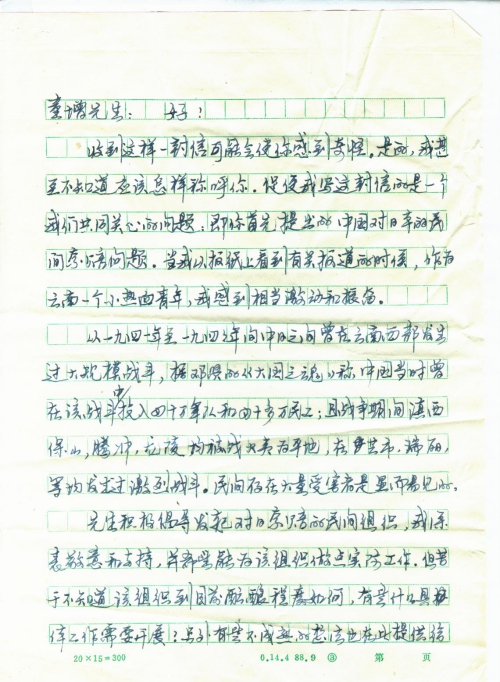 童增先生: 好!
收到这样一封信可能会使你感到奇怪。是的,我甚
至不知道应该怎样称呼你。促使我写这封信的是一个
我们共同关心的问题:即你首先提出的中国对日本的民
间索赔问题。当我从报纸上看到有关报道的时侯,作为
云南一个小热血青年,我感到相当激动和振奋。
从一九四一年至一九四七年间中日之间曾在云南西部发生
过大规模战斗,据邓贤的《大国之魂》称中国当时曾
在该战斗中投入四十万军队和四十多万民工;且战争期间滇西
保山,腾冲,龙陵均被战火夷为平地,在芒市、瑞丽,
等均发生过激烈战斗。民间存在大量受害者是显而易见的。
先生积极倡导发起对日索赔的民间组织,我深
表敬意和支持,并希望能为该组织做点实际工作。但苦
于不知道该组织到目前酝酿程度如何,有些什么具
体工作需要开展?另外有些不成熟的想法也在此提供给
20×15=300 0.14.4 88.9 ③ 第 页